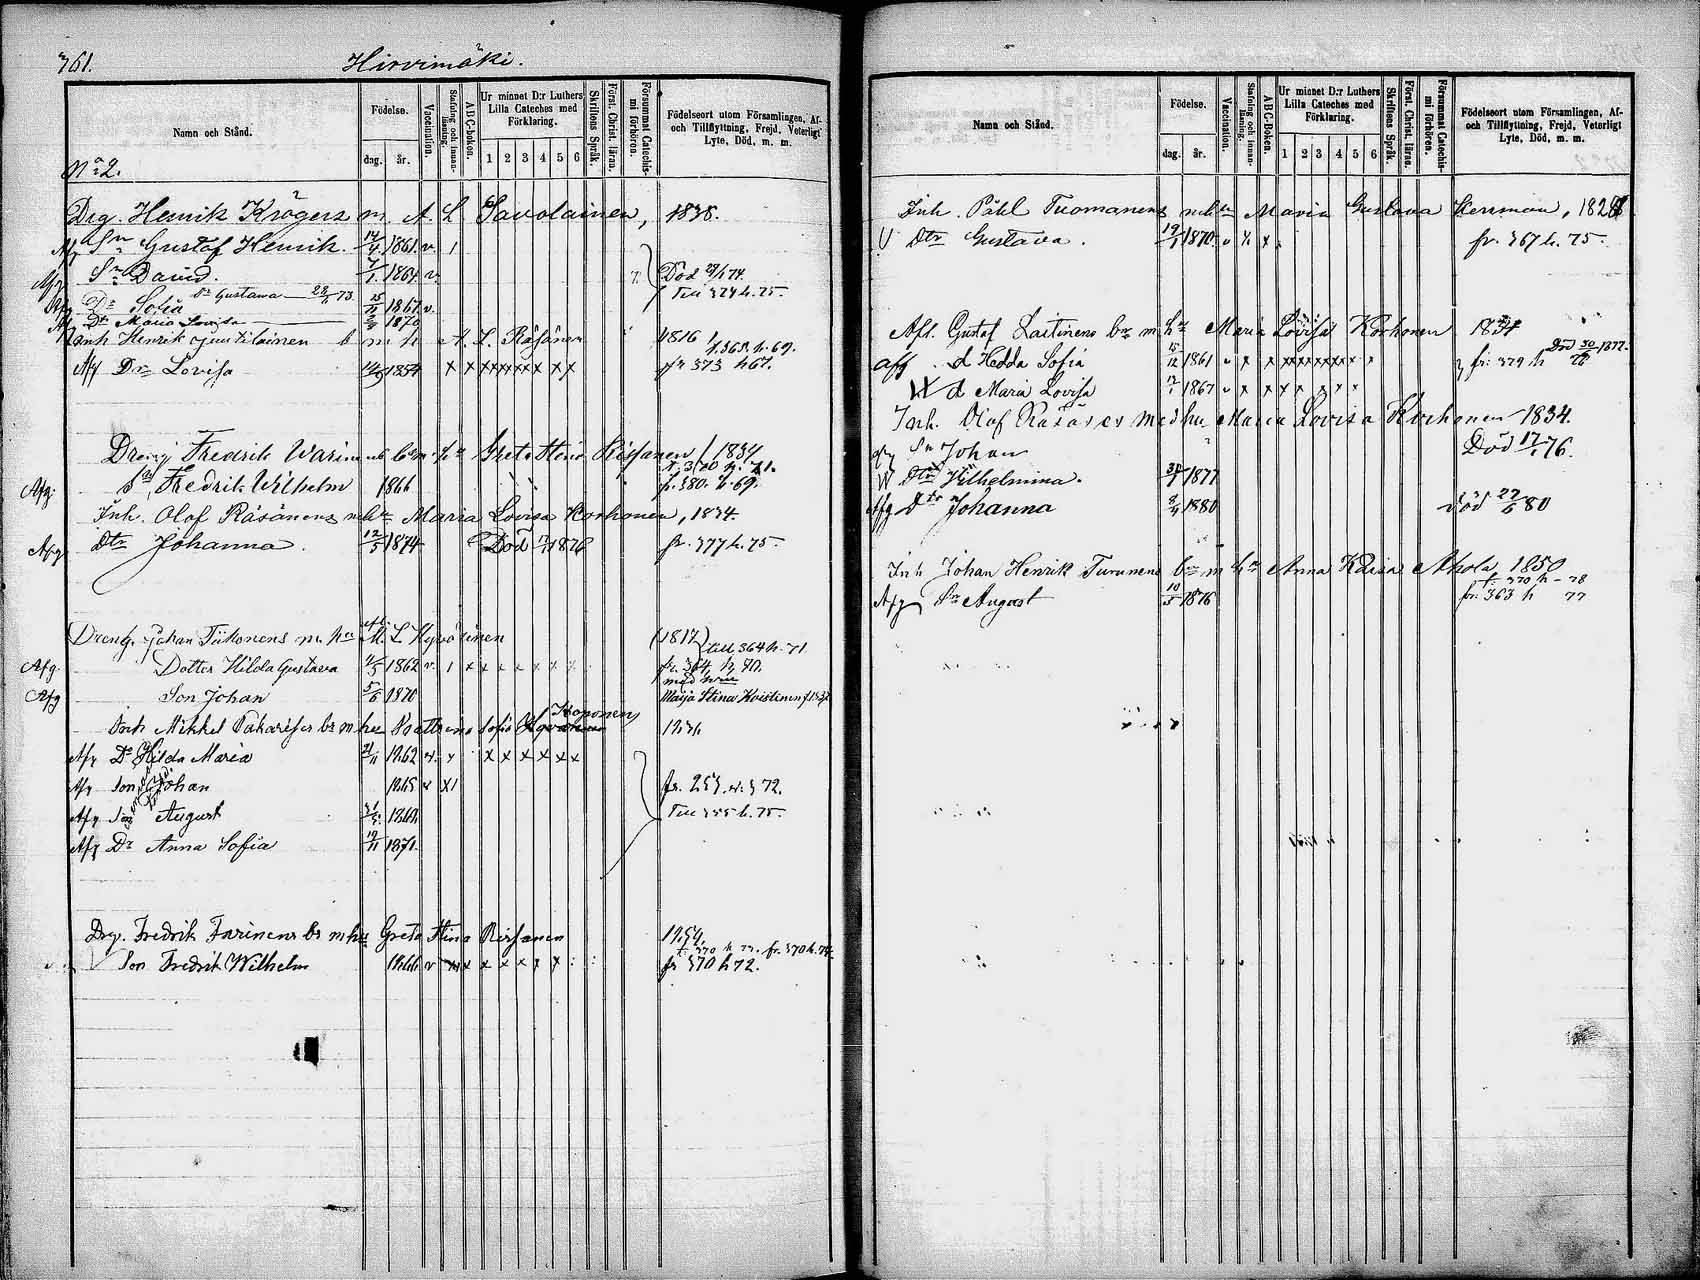 361. Hirvimäki.
Namn och Stånd.
Födelse.
dag. år.
Vaccination.
Stafning och innan-läsning.
ABC-boken.
Ur minnet D:r Luthers Lilla Cateches med Förklaring.
1 2 3 4 5 6
Skriftens Språk.
Först. Christ. läran.
Försummat Catechis-mi förhören.
Födelseort utom Församlingen, Af- och Tillflyttning, Frejd, Veterligt Lyte, Död, m. m.
No 2.
Drg. Henrik Krögers m. A. L. Savolainen, 1838.
Afg Sn Gustaf Henrik 1861 v. 1
Afg Sn David. 1864 v. Död
Dr Gustava 73
Afg Dr Sofia 1867 v. Till 324 h. 75.
Afg Dr Maria Lovisa 1870
Inh Henrik b m h A. L. Räsänen 1816
f. 365 h. 69.
Afg Dr Lovisa 1854 x x x x x x x x x x fr 373 h 67.
Dreng Fredrik Warinens bs m hu Greta Stina Rissanen 1834
f. 370 h. 71.
Afg. Sn Fredrik Wilhelm 1866 f. 380. h. 69.
Inh. Olof Räsänens m hu Maria Lovisa Korhonen, 1834.
Afg Dtr Johanna. 12/5 1874 Död 1876 fr. 377 h. 75.
Dreng. Johan Tiikonens m. hu M. L. Hyvärinen (1817) till 364 h. 71
Afg. Dotter Hilda Gustava 1862 v. 1 x x x x x x x fr. 364 h. 70.
Afg Son Johan 5/6 1870 Maija Stina Koistinen f. 1837
Inh Mikkel Pakarises bs m hu Kattrina Sofia Koponen
Afg Dr Hilda Maria 1862 v. x x x x x x
Afg Son Johan 1865 v x 1 fr. 253 72.
Afg Son August 1868 Till 355 h. 75.
Afg Dr Anna Sofia 19/11 1871.
Drg. Fredrik Farinens bs m hu Greta Stina Rissanen
Son Fredrik Wilhelm 1866 v x x x x x x fr 370 h 72.
Namn och Stånd.
Födelse.
dag. år.
Vaccination.
Stafning och innan-läsning.
ABC-Boken.
Ur minnet D:r Luthers Lilla Cateches med Förklaring.
1 2 3 4 5 6
Skriftens Språk.
Först. Christ. läran.
Försummat Catechis-mi förhören.
Födelseort utom Församlingen, Af- och Tillflyttning, Frejd, Veterligt Lyte, Död, m. m.
Inh. Påhl Tuomanens m hu Maria Gustava Herrman, 1828
Dtr Gustava. 19/1 1870 v x x fr. 367 h. 75.
Afl. Gustaf Laitinens bs m hu Maria Lovisa Korhonen 1834
Afg d Hedda Sofia 15/12 1861 v x x x x x x x x x fr. 379 h Död 30 1877.
d Maria Lovisa 17/1 1867 v x x x x x x x
Inh. Olof Räsäses med hu Maria Lovisa Korhonen 1834.
Sn Johan Död 76.
Dtr Wilhelmina. 1877
Afg Dtr Johanna 8/4 1880 död 80
Inh Johan Henrik Turunens bs m hu Anna Kaisa Ahola 1850
f. 370 h - 78
Afg Sn August 10/5 1876 fr. 363 h 77